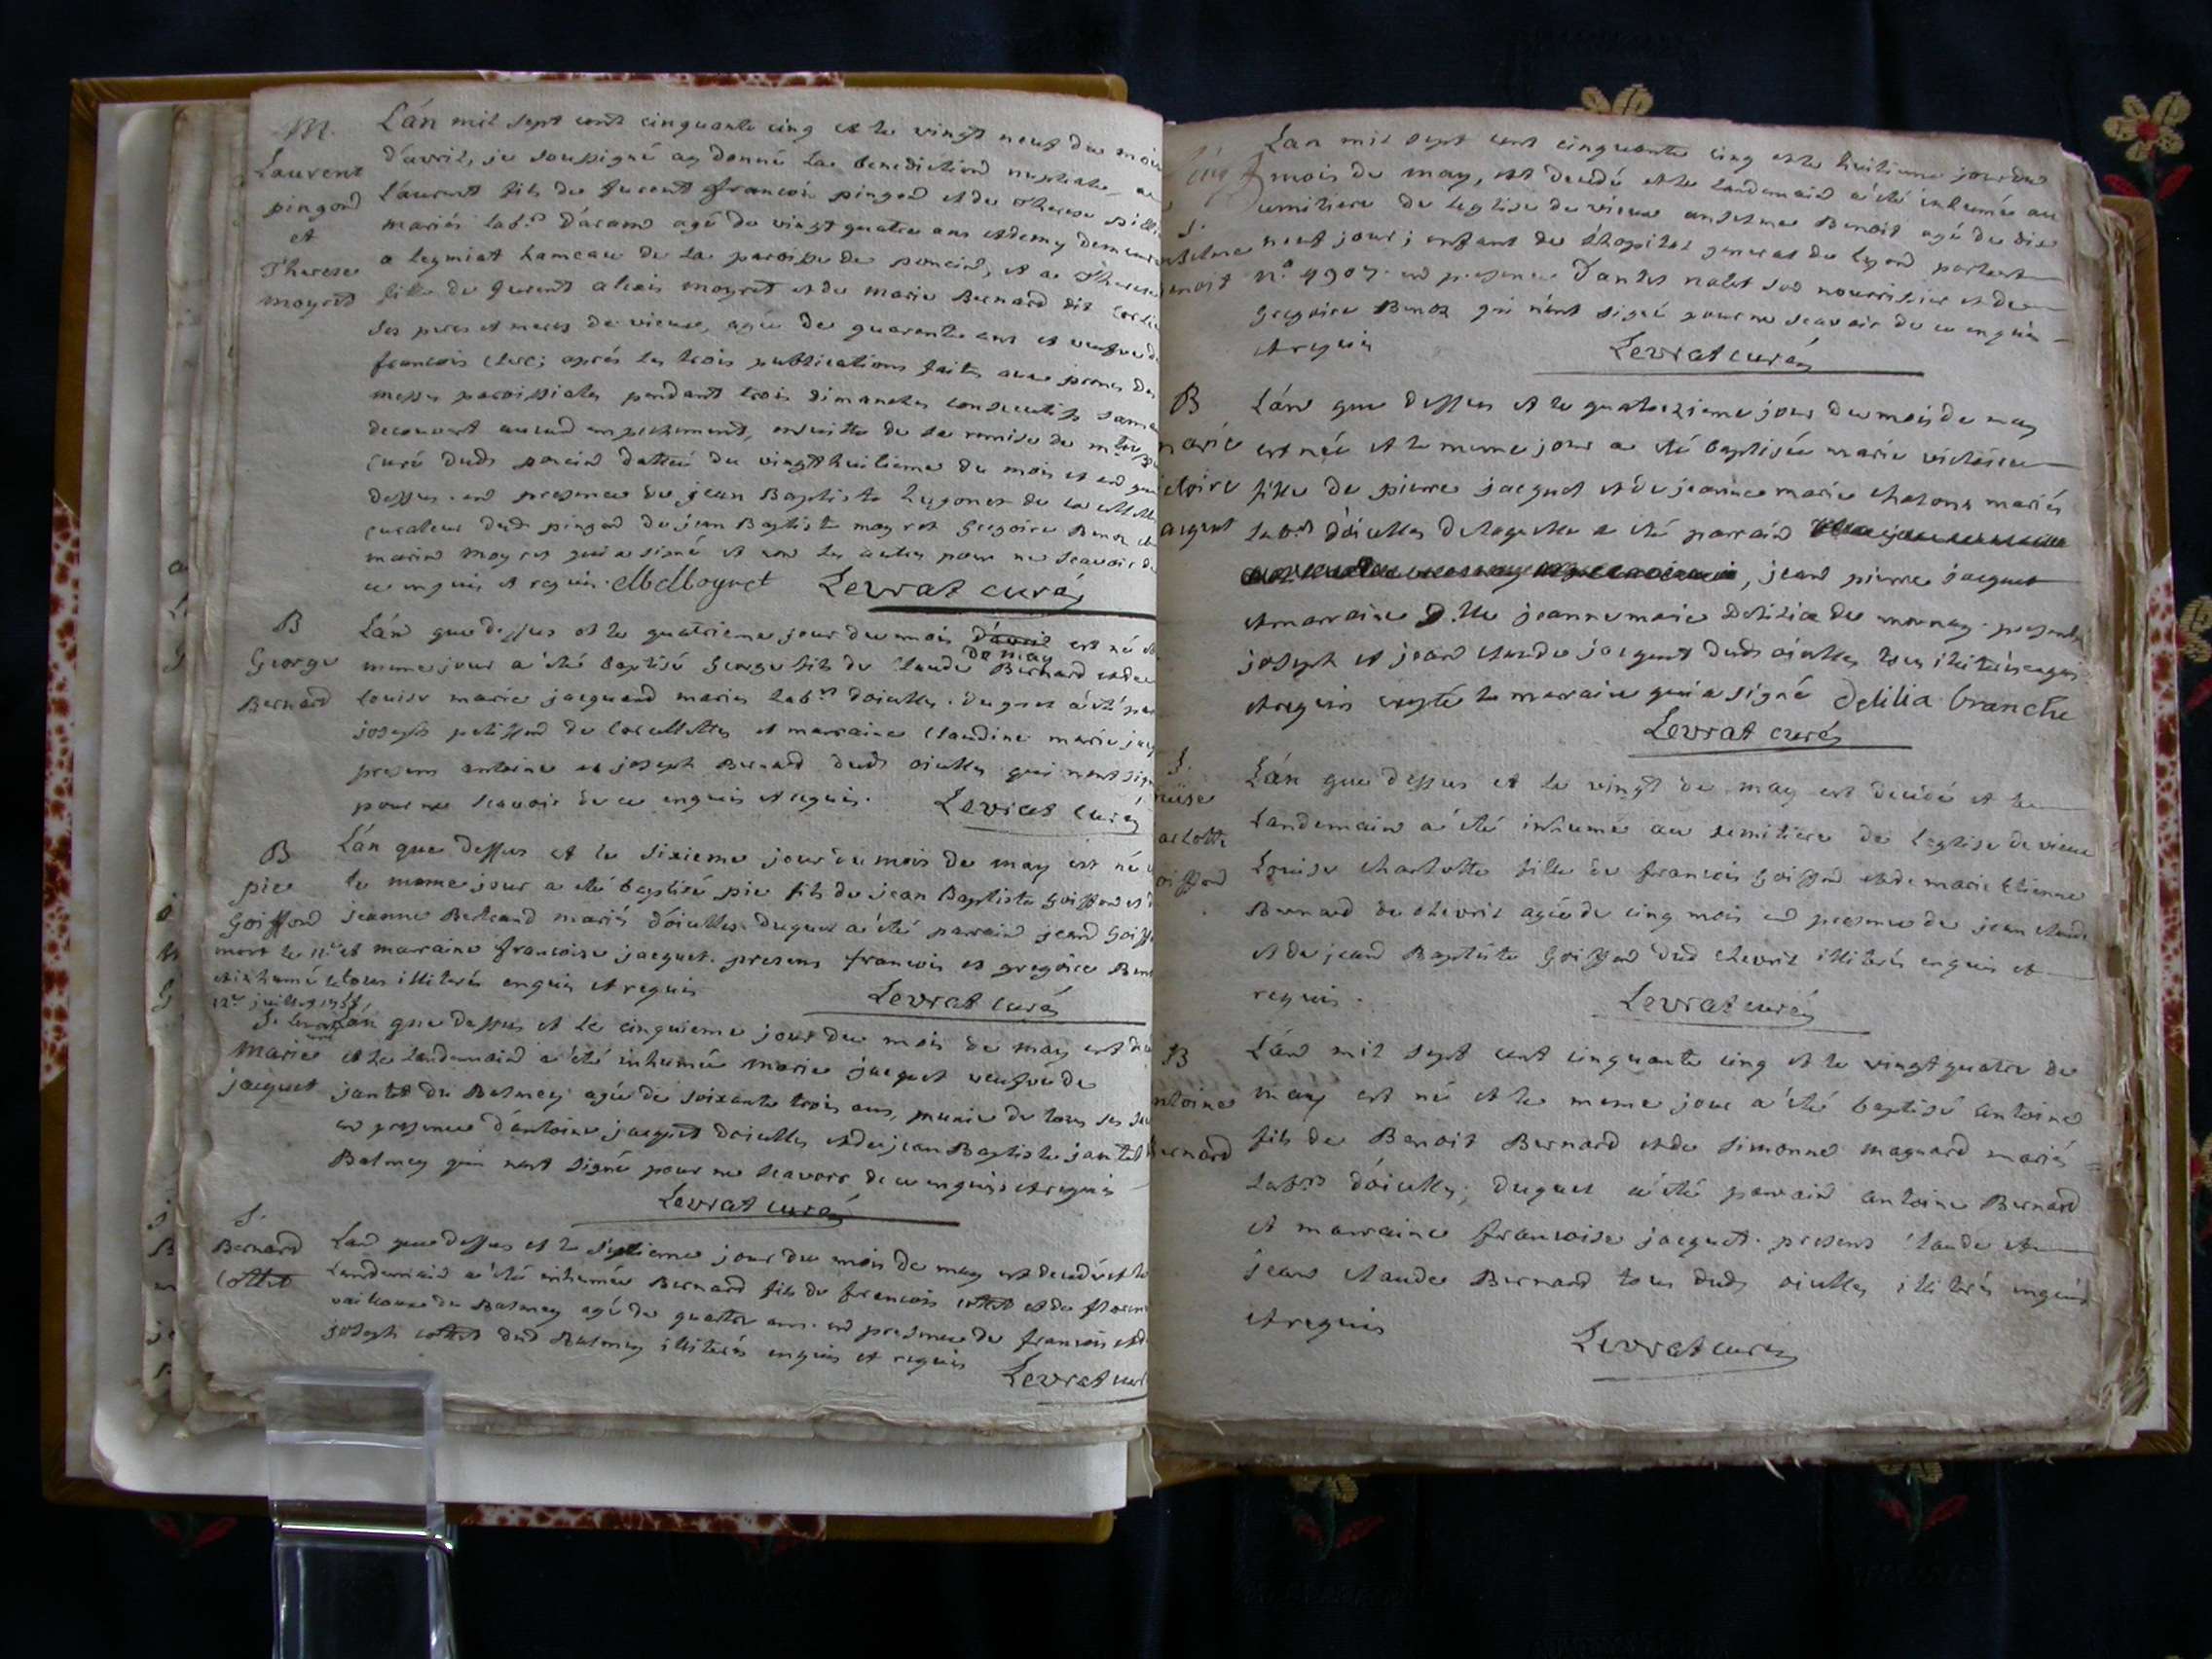 M.
Laurent
pingon
et
Therese
moyret
L'án mil sept cent cinquante cinq et le vingt neuf du mois
d'avril, je soussigné ay donné la benediction nuptiale a
Laurent fils de furent francois pingon et de Therese
mariés lab.rs d'aram agé de vingt quatre ans et demy demeurant
a legniat hameau de la paroisse de poncin, et a Therese
fille de furent alexis moyret et de marie Bernard dit
ses peres et meres de vieux, agée de quarante ans et veufve de
francois clerc; aprés les trois publications faites aux prones des
messes paroissiales pendant trois dimanches consecutifs sans
decouvert aucun empechement, ensuitte de la remise de
curé dud. poncin dattée du vingt huitieme du mois et an que
dessus. en presence de jean Baptiste hugonet de
curateur dud. pingon de jean Baptiste moyret gregoire Benoz et
marin moyret qui a signé et non les autres pour ne scavoir de
ce enquis et requis. MMoyret Levrat curé
B
George
Bernard
L'án que dessus et le quatrieme jour du mois d'avril est né et
de may
meme jour a été baptisé george fils de claude Bernard et de
Louise marie jacquand mariés lab.rs doiculles. duquel a été
joseph petissend de et marraine claudine marie
presens antoine et joseph Bernard dud. oiculles qui nont signé
pour ne scavoir de ce enquis et requis. Levrat curé
B
pie
Goiffon
mort le 11.e
et inhumé le
12.e juillet
Levrat
L'án que dessus et le sixieme jour du mois de may est né
le meme jour a été baptisé pie fils de jean Baptiste Goiffon et
jeanne Bertrand mariés d'oiculles. duquel a été parrain jean
et marraine francoise jacquet. presens francois et gregoire
tous illiterés enquis et requis
Levrat curé
S.
Marie
jacquet
L'án que dessus et le cinquieme jour du mois de may est
et le landemain a été inhumée marie jacquet veufve de
jantet du Balmey agée de soixante trois ans, munie de tous ses
en presence d'antoine jacquet doiculles et de jean Baptiste jantet
Balmey qui nont signé pour ne scavoir de ce enquis et requis
Levrat curé
S.
Bernard
Cottet
L'an que dessus et le septieme jour du mois de may est decedé et le
landemain a été inhumée Bernard fils de francois cottet et de
du Balmey agé de quatre ans. en presence de francois et
joseph cottet dud. Balmey illiterés enquis et requis
Levrat curé
S.
Benoit
L'an mil sept cent cinquante cinq et le huitieme jour du
mois de may, est decedé et le landemain a été inhumée au
cemitiere de leglise de vieux anselme Benoit agé de dix
neuf jour; enfant de l'hopital general de Lyon portant
n.º 4907. en presence d'antet nalet son nourrissier et de
gregoire Benoz qui n'ont signé pour ne scavoir de ce enquis
et requis
Levrat curé
B
marie
L'án que dessus et le quatorzieme jour du mois de may
est née et le meme jour a été baptisée marie victoire
fille de pierre jacquet et de jeanne marie chatona mariés
lab.rs d'oiculles de laquelle a été parrain
, jean pierre jacquet
et marraine D.lle jeanne marie Delilia de mornay. presents
joseph et jean claude jacquet dud. oiculles tous illiterés enquis
et requis excepté la marraine qui a signé Delilia branche
Levrat curé
S.
L'án que dessus et le vingt de may est decedé et le
landemain a été inhumé au semitiere de leglise de vieux
Louise charlotte fille de francois Goiffon et de marie Etienne
Bernard de chevril agée de cinq mois en presence de jean claude
et de jean Baptiste Goiffon dud. chevril illiterés enquis et
requis.
Levrat curé
B
antoine
Bernard
L'án mil sept cent cinquante cinq et le vingt quatre de
may est né et le meme jour a été baptisé antoine
fils de Benoit Bernard et de simonne maguard mariés
lab.rs d'oiculles; duquel a été parrain antoine Bernard
et marraine francoise jacquet. presens claude et
jean claude Bernard tous dud. oiculles illiterés enquis
et requis
Levrat curé